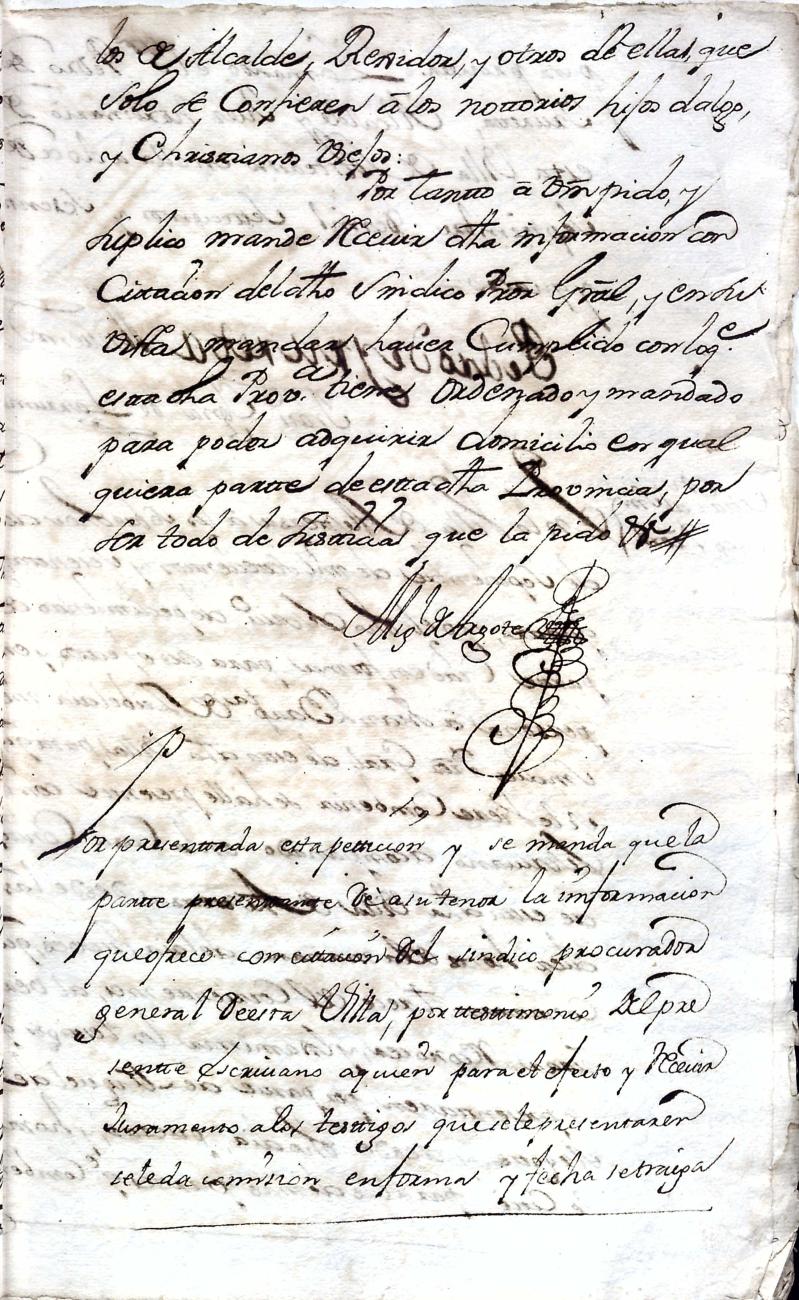 los de Alcalde, Rexidor, y otros de ellas, que
solo se Confieren â los nottorios hijos dalgo,
y Christianos Viejos:
Por tantto â Vm pido, y
suplico mande Recevir dha informacion con
Cittacion del dho Sindico Pror Gral, y en su
vistta mandar haver Cumplido con lo qe
esta dha Prova tiene Ordenzado y mandado
para poder adquirir domicilio en qual
quiera partte de estta dha Provincia, por
ser todo de Justicia que la pido &a
Migl de Lazote
Por presenttada estta petticion y se manda que la
partte presenttante Dé a su tenor la informacion
que ofrece con cittación Del sindico procurador
general De esta Villa, por testtimonio Del pre
sentte Escrivano a quien para el efecto y Recevir
Juramento a los testtigos que se le presentaren
se le da comision en forma y fecha se traiga